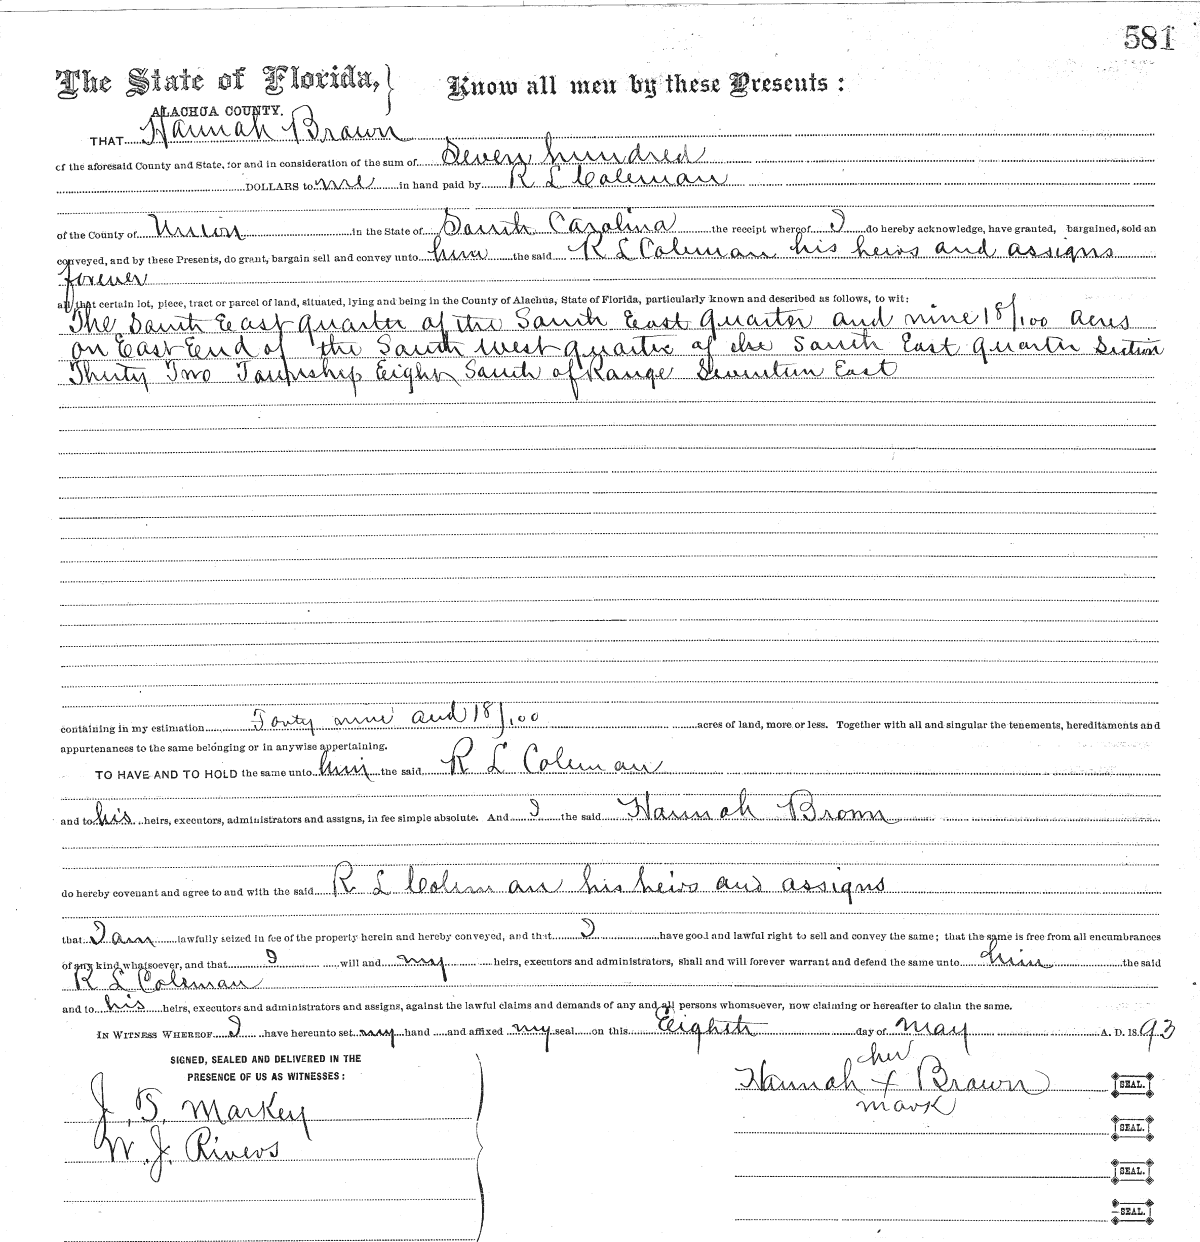 581
The State of Florida, } Know all men by these Presents:
ALACHUA COUNTY.
THAT Hannah Brown
of the aforesaid County and State, for and in consideration of the sum of Seven hundred
DOLLARS to me in hand paid by R L Coleman
of the County of Union in the State of South Carolina the receipt whereof I do hereby acknowledge, have granted, bargained, sold an
conveyed, and by these Presents, do grant, bargain sell and convey unto him the said R L Coleman his heirs and assigns
forever
all that certain lot, piece, tract or parcel of land, situated, lying and being in the County of Alachua, State of Florida, particularly known and described as follows, to wit:
The South East quarter of the South East quarter and nine 18/100 acres
on East End of the South West quarter of the South East quarter Section
Thirty Two Township Eight South of Range Seventeen East
containing in my estimation Forty nine and 18/100 acres of land, more or less. Together with all and singular the tenements, hereditaments and
appurtenances to the same belonging or in anywise appertaining.
TO HAVE AND TO HOLD the same unto him the said R L Coleman
and to his heirs, executors, administrators and assigns, in fee simple absolute. And I the said Hannah Brown
do hereby covenant and agree to and with the said R L Coleman his heirs and assigns
that I am lawfully seized in fee of the property herein and hereby conveyed, and that I have good and lawful right to sell and convey the same; that the same is free from all encumbrances
of any kind whatsoever, and that I will and my heirs, executors and administrators, shall and will forever warrant and defend the same unto him the said
R L Coleman
and to his heirs, executors and administrators and assigns, against the lawful claims and demands of any and all persons whomsoever, now claiming or hereafter to claim the same.
IN WITNESS WHEREOF I have hereunto set my hand and affixed my seal on this Eighth day of May A. D. 1893
SIGNED, SEALED AND DELIVERED IN THE
PRESENCE OF US AS WITNESSES:
her
Hannah x Brown SEAL.
mark
J. B. Markey
SEAL.
W. J. Rivers
SEAL.
SEAL.